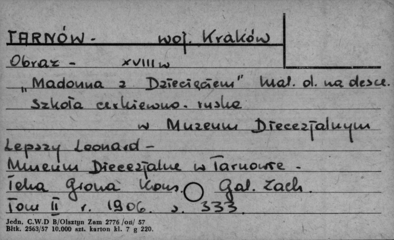 TARNÓW - woj. Kraków
Obraz - XVIII w
„Madonna z Dzieciąciem" mal. ol. na desce.
Szkoła cerkiewno-ruska
w Muzeum Diecezjalnym
Lepszy Leonard -
Muzeum Diecezjalne w Tarnowie -
Teka Grona Kons. Gal. Zach.
Tom II r. 1906. s. 333.
Jedn. C.W.D B/Olsztyn Zam 2776 /on/ 57
Bltk. 2563/57 10.000 szt. karton kl. 7 g 220.